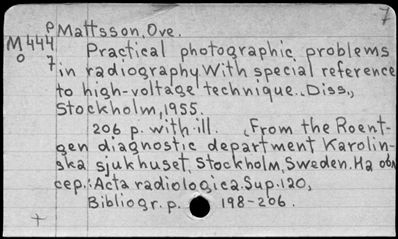 7
P Mattsson, Ove.
M 444 Practical photographic problems
o 7 in radiography. With special reference
to high-voltage technique. Diss.,
Stockholm, 1955.
206 p. with ill. From the Roent-
gen diagnostic department Karolin-
ska sjukhuset, Stockholm, Sweden. Ha
cep.: Acta radiologica. Sup. 120,
Bibliogr. p. 198-206.